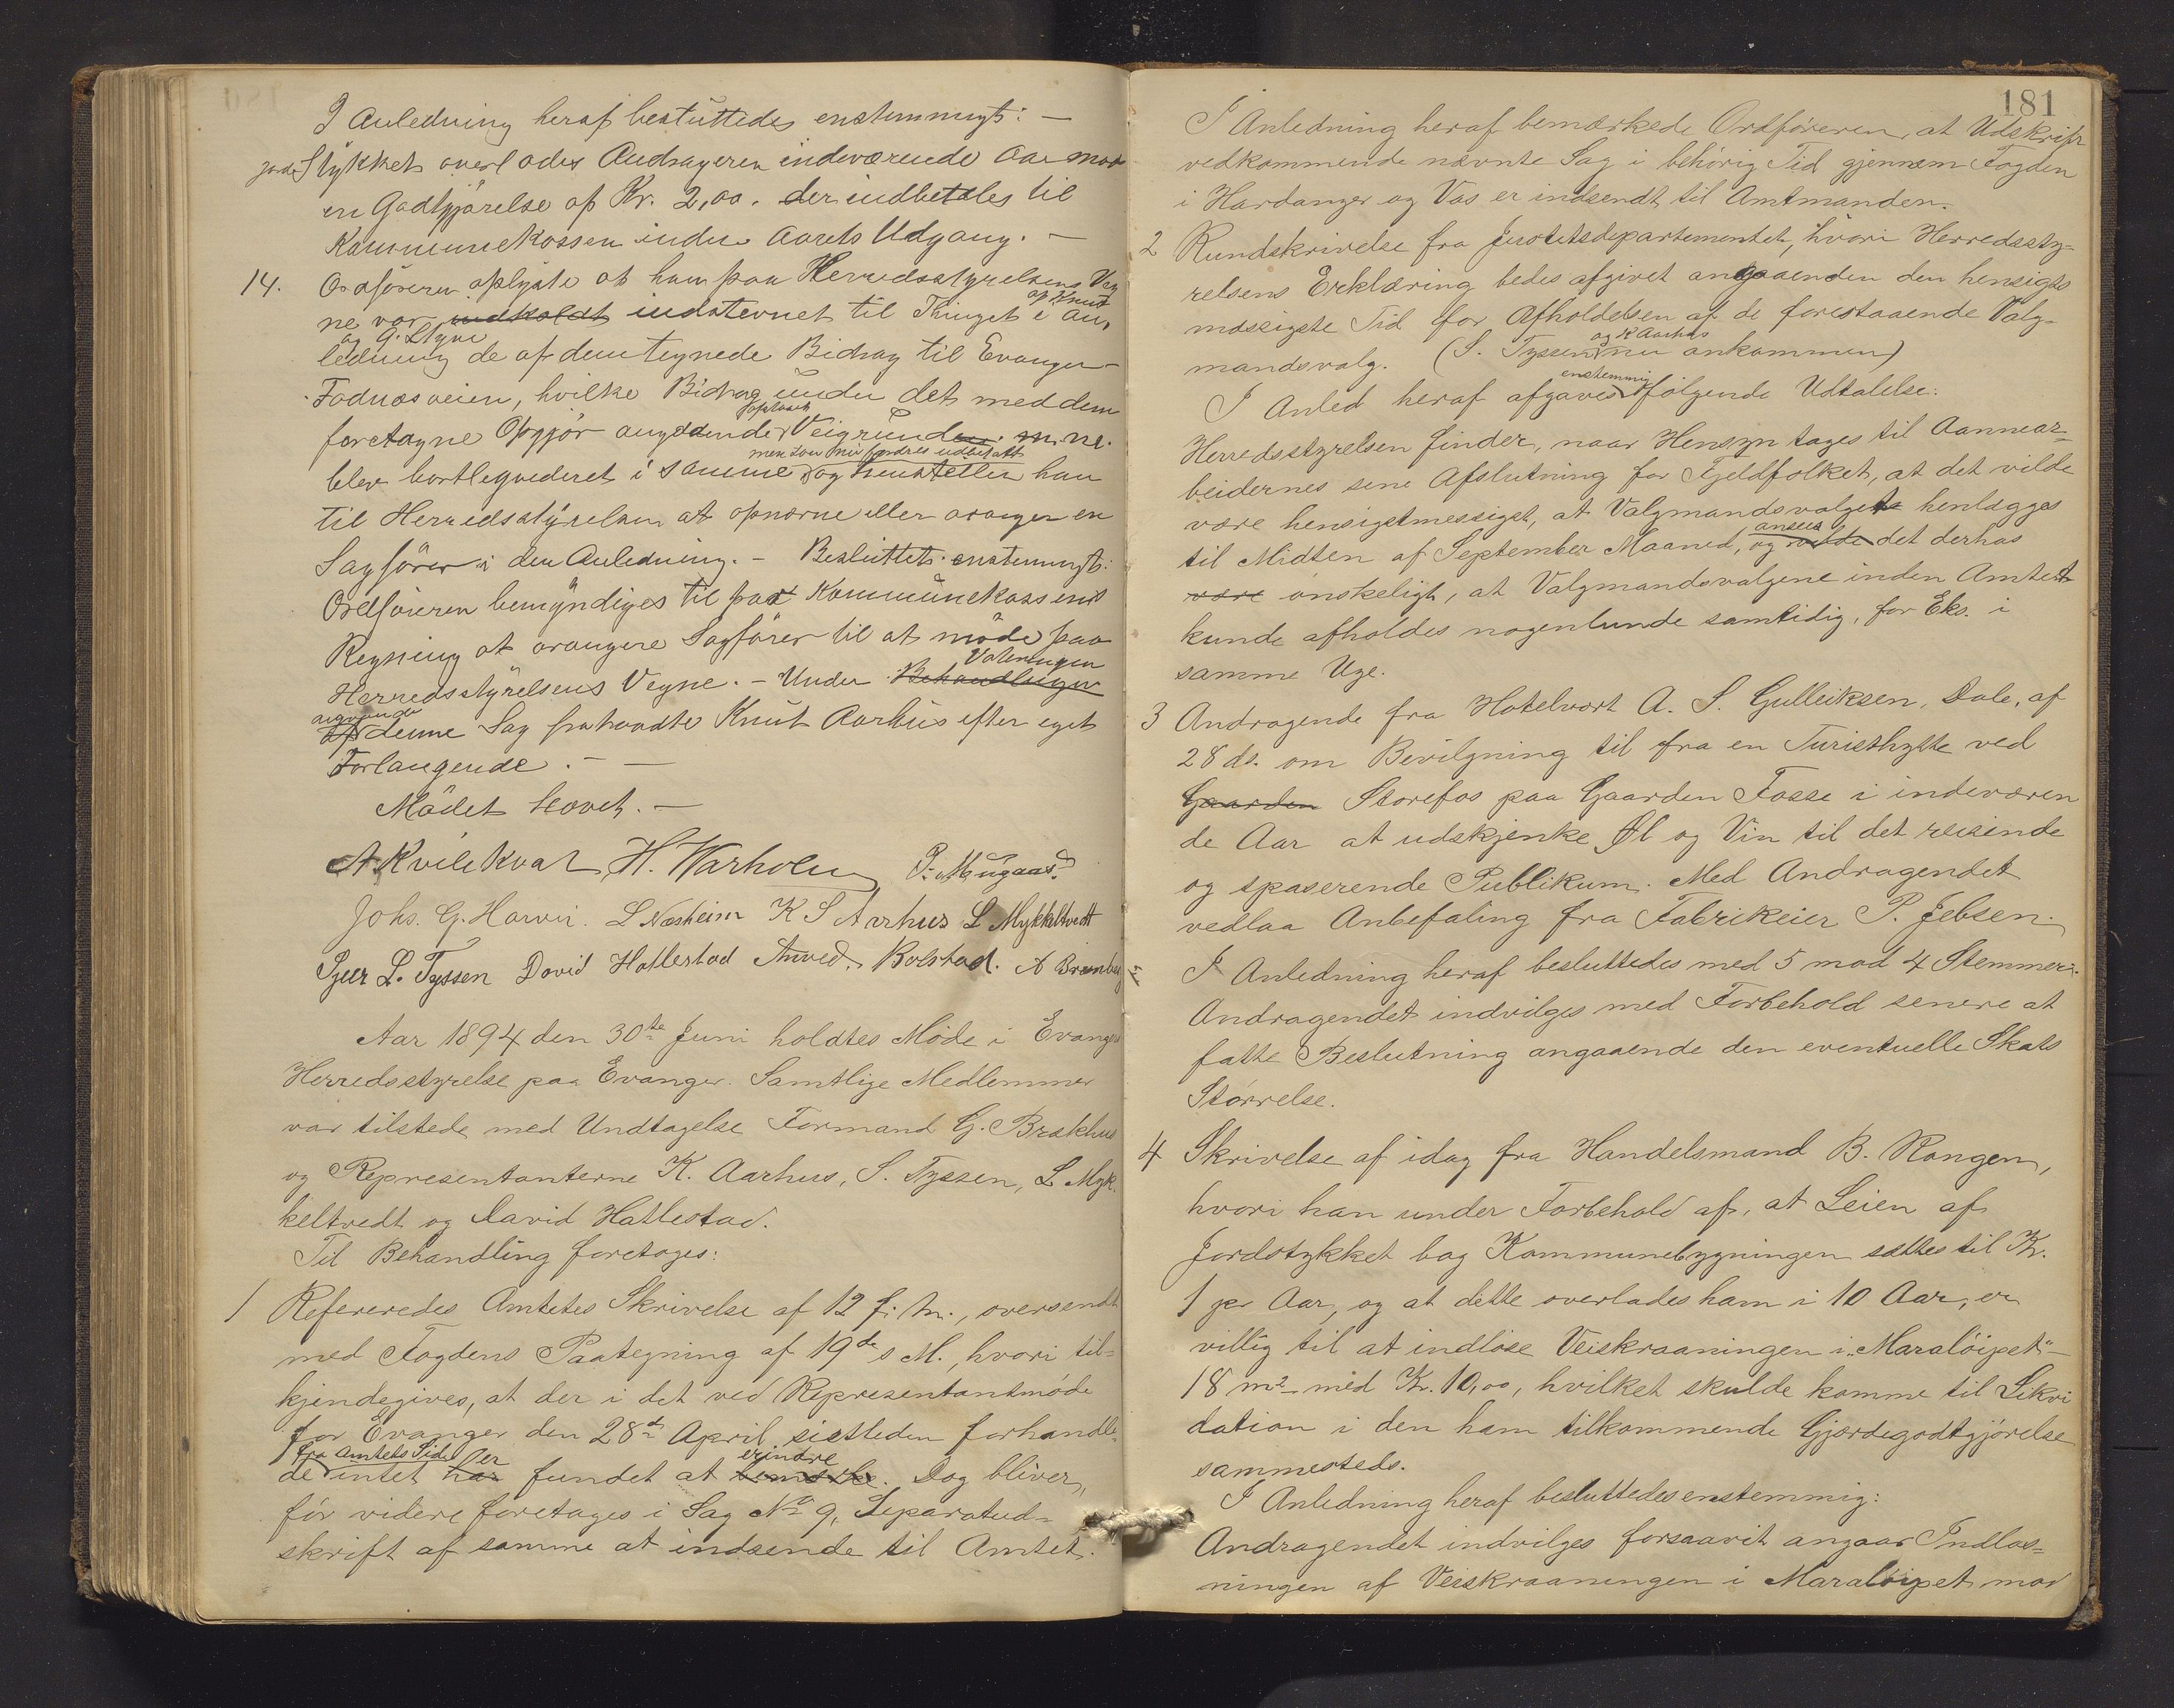 I Anledning heraf besluttedes enstemmigt: —
Jord Stykket overlades Andrageren indeværende Aar mod
en Godtgjörelse af Kr. 2,00. der indbetales til
Kommunekassen inden Aarets Udgang. —
14. Ordföreren oplyste at han paa Herredsstyrelsens Veg
ne var indkaldt indstevnet til Thinget i An
af Knut
og G. Styve
ledning de af dem tegnede Bidrag til Evanger-
Fadnæsveien, hvilke Bidrag under det med dem
foretagne Opgjör angaaende Veigrunden m. m.
optaush
blev bortlegvideret i samme og henstetter han
men som nu fordres udbetalt
til Herredsstyrelsen at opnævne eller arangere en
Sagförer i den Anledning. — Besluttet enstemmigt:
Ordföreren bemyndiges til paa Kommunekassens
Regning at arangere Sagförer til at möde paa
Herredsstyrelsens Vegne. — Under Behandlingen
Voteringen
angaaende
af denne Sag fratraadte Knut Aarhus efter eget
Forlangende. — —
Mödet hævet. —
A Kvilekval H. Warholm P. Mugaas.
Johs. G. Horvei. L Næsheim K S Aarhus L Mykkeltvedt
Sjur L. Tyssen David Hallestad Amved. Bolstad. A Brænberg
Aar 1894 den 30te Juni holdtes Möde i Evanger
Herredsstyrelse paa Evanger. Samtlige Medlemmer
var tilstede med Undtagelse Formand G. Brækhus
og Representanterne K. Aarhus, S. Tyssen, L Myk-
keltvedt og David Hallestad.
Til Behandling foretages:
1 Refereredes Amtets Skrivelse af 12 f. M., oversendt
med Fogdens Paategning af 19de s M., hvori til-
kjendegives, at der i det ved Representantmøde
for Evanger den 28de April sistleden forhandle-
fra Amtets Side er erindre
de intet har fundet at bemærke. Dog bliver,
før videre foretages i Sag No 9, Separatud-
skrift af samme at indsende til Amtet.
181
I Anledning heraf bemærkede Ordføreren, at Udskrift
vedkommende nævnte Sag i behörig Tid gjennem Fogden
i Hardanger og Vos er indsendt til Amtmanden.
2 Rundskrivelse fra Justitsdepartementet, hvori Herredssty-
relsens Erklæring bedes afgivet angaaenden den hensigts
mæssigste Tid for Afholdelsen af de forestaaende Valg-
og K Aarhus
mandsvalg. (S. Tyssen nu ankommen)
enstemmig
I Anled heraf afgaves følgende Udtalelse:
Herredsstyrelsen finder, naar Hensyn tages til Aannear-
beidernes sene Afslutning for Fjeldfolket, at det vilde
være hensigtmessigst, at Valgmandsvalget henlægges
ansees
til Midten af September Maaned, og vilde det derhos
være önskeligt, at Valgmandsvalgene inden Amtet
kunde afholdes nogenlunde samtidig, for Eks. i
samme Uge.
3 Andragende fra Hotelvært A. S. Gulleiksen, Dale, af
28 ds. om Bevilgning til fra en Turisthytte ved
Gaarden Storefos paa Gaarden Fosse i indeværen
de Aar at udskjenke Øl og Vin til det reisende
og spaserende Publikum. Med Andragendet
vedlaa Anbefaling fra Fabrikeier P. Jebsen.
I Anledning heraf besluttedes med 5 mod 4 Stemmer:
Andragendet indvilges med Forbehold senere at
fatte Beslutning angaaende den eventuelle Skats
Størrelse.
4 Skrivelse af idag fra Handelsmand B. Rongen,
hvori han under Forbehold af, at Leien af
Jordstykket bag Kommunebygningen sættes til Kr.
1 pr Aar, og at dette overlades ham i 10 Aar, er
villig til at indløse Veiskraaningen i „Maraløipet"
18 m2 med Kr. 10,00, hvilket skulde komme til Likvi
dation i den ham tilkommende Gjærdegodtgjørelse
sammesteds.
I Anledning heraf besluttedes enstemmig:
Andragendet indvilges forsaavit angaar Indløs-
ningen af Veiskraaningen i Maraløipet mod